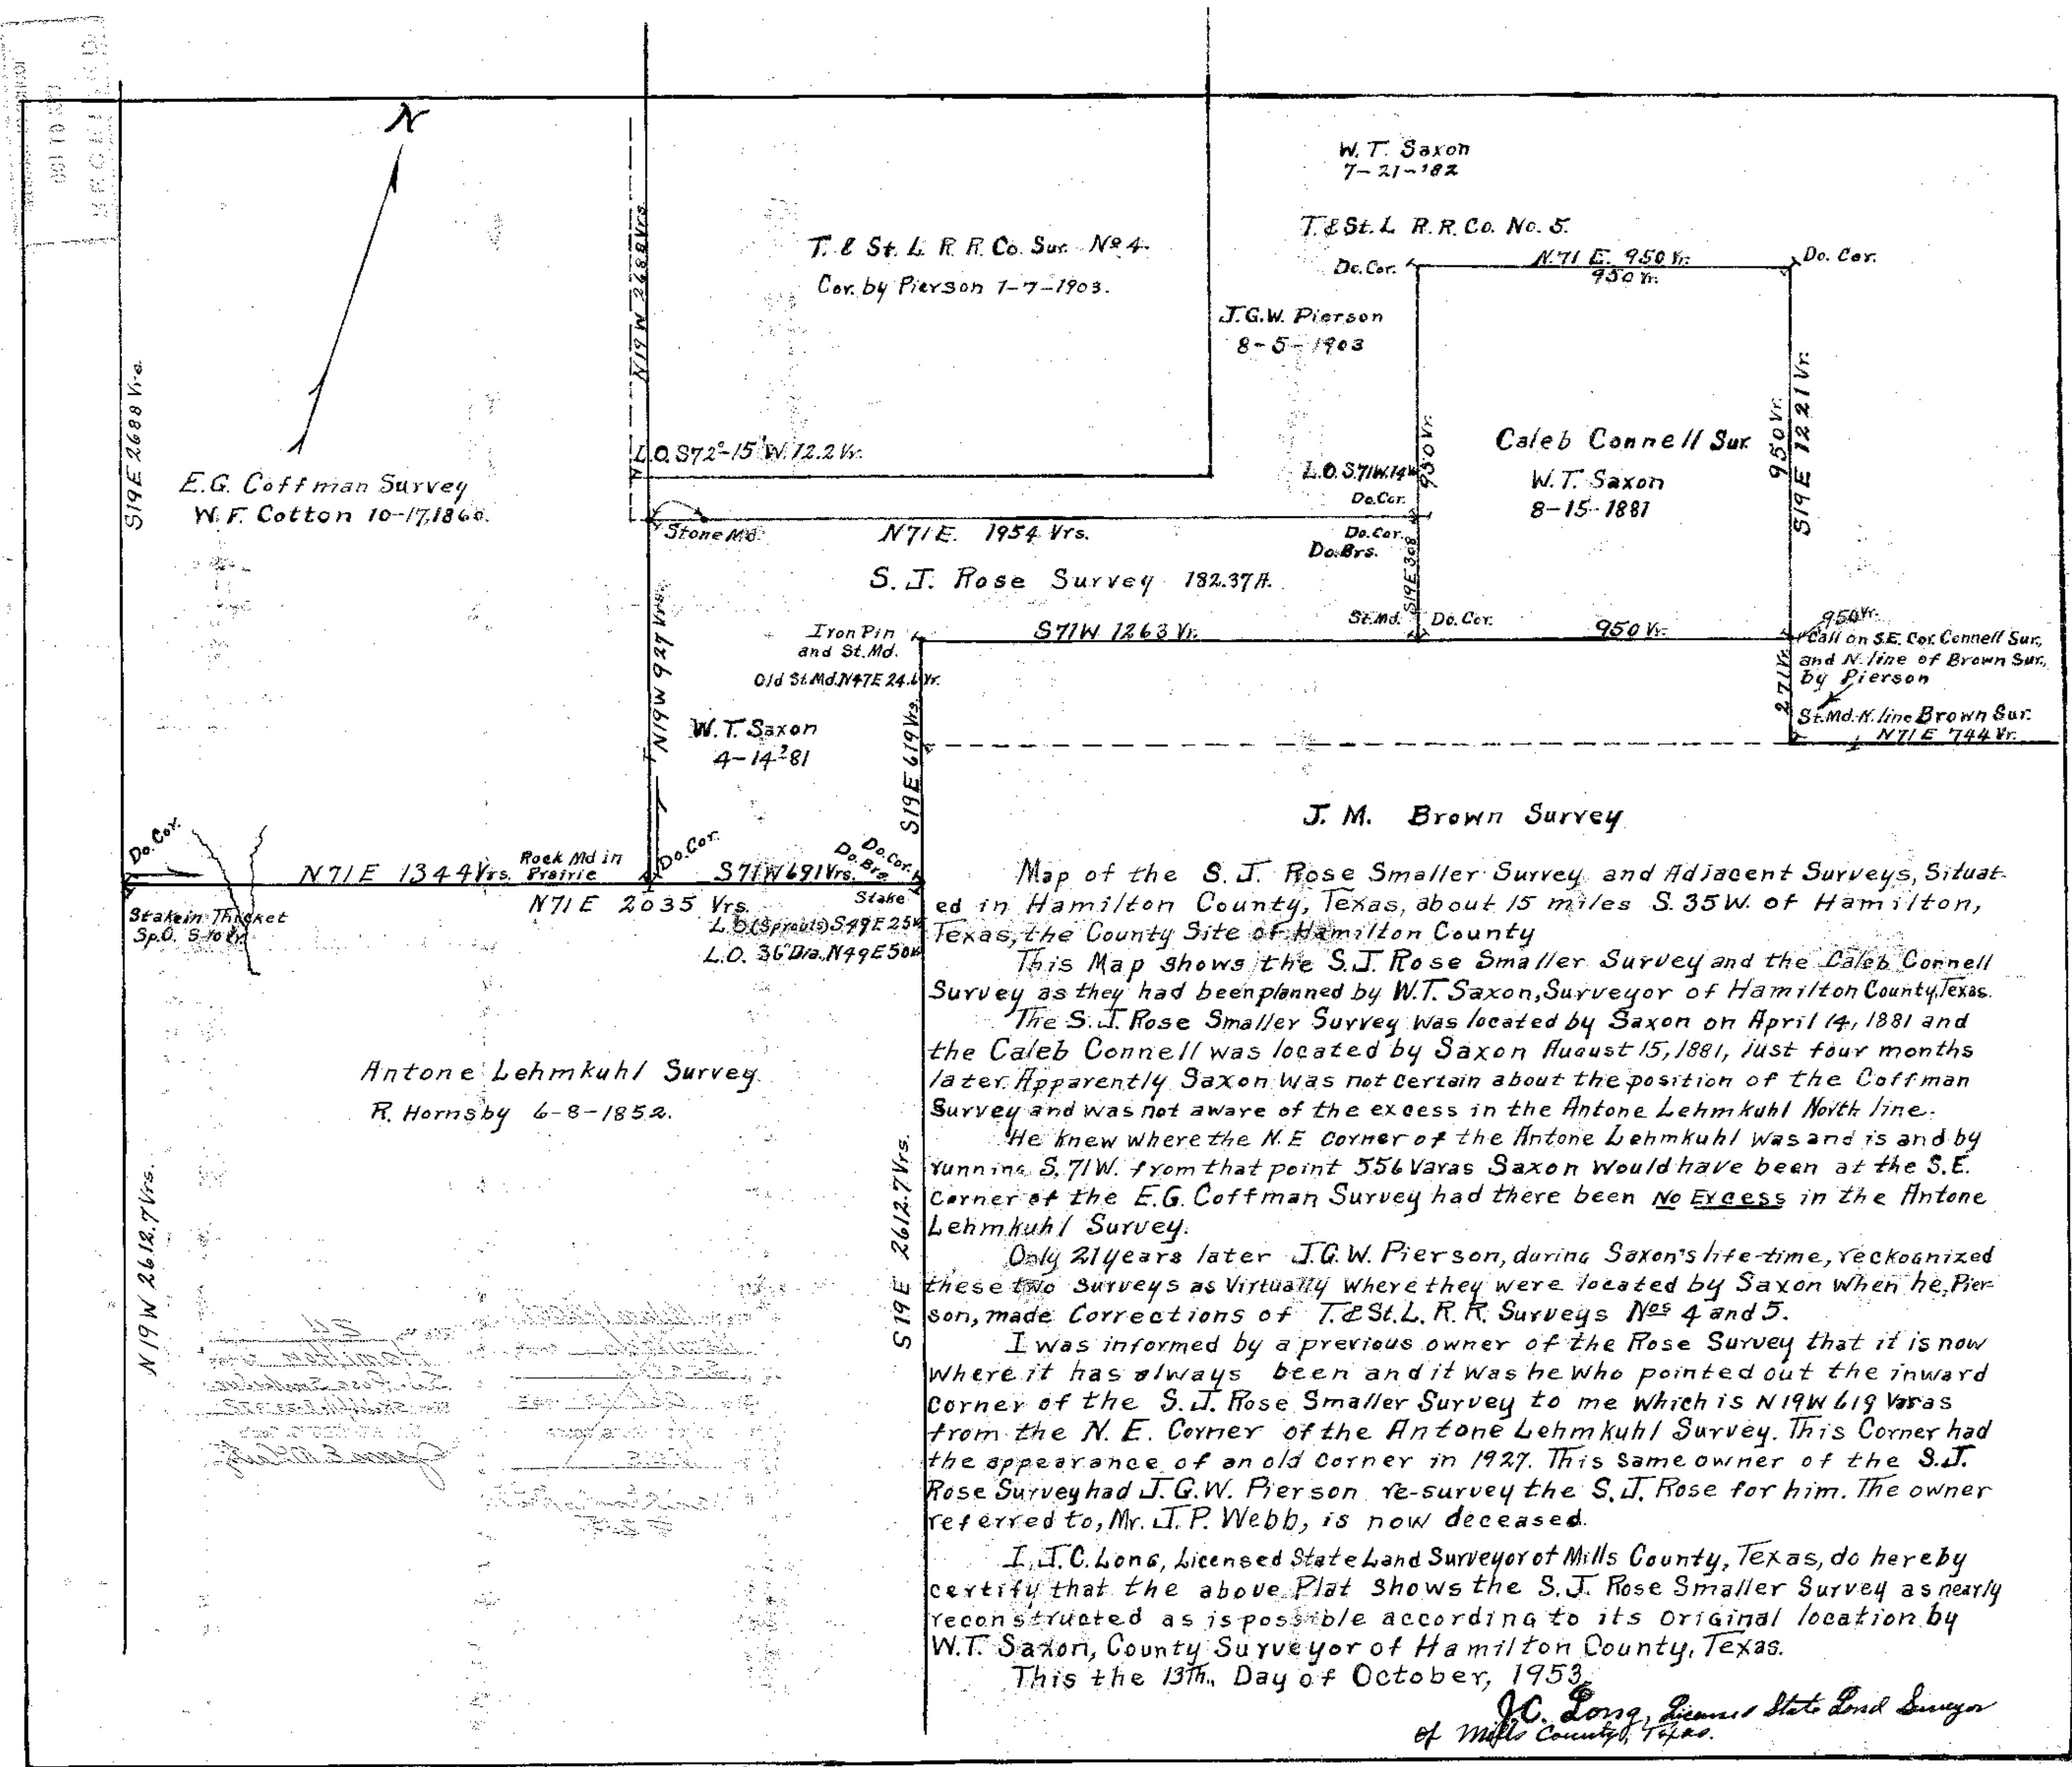 N
W. T. Saxon
7-21-'82
T. & St. L R. R. Co. No. 5.
T. & St. L R R. Co. Sur. No 4.
Cor. by Pierson 1-7-1903.
Do. Cor.
N. 71 E. 950 Vr.
950 Vr.
Do. Cor.
J. G. W. Pierson
8-5-1903
N19W 2688 Vrs.
S19E 2688 Vrs.
E. G. Coffman Survey
W. F. Cotton 10-17, 1860.
L.O. S72°-15' W. 12.2 Vr.
950 Vr.
L.O. S71W. 14
Do. Cor.
Caleb Connell Sur.
W. T. Saxon
8-15-1881
950 Vr.
S19E 1221 Vr.
Stone Md.
N71E. 1954 Vrs.
Do. Cor.
Do. Brs.
S19E 308
S. J. Rose Survey 182.37 A.
Iron Pin
and St. Md.
Old St. Md. N47E 24.6 Vr.
S71W 1263 Vr.
St. Md.
Do. Cor.
950 Vr.
950 Vr.
Call on S. E. Cor. Connell Sur.,
and N. line of Brown Sur.,
by Pierson
271 Vr.
St. Md. N. line Brown Sur.
N71E 744 Vr.
N19W 927 Vrs.
W. T. Saxon
4-14-'81
S19E 619 Vrs.
J. M. Brown Survey
Do. Cor.
N71E 1344 Vrs.
Rock Md in
Prairie
Do. Cor.
S71W 691 Vrs.
Do. Cor.
Do. Brs.
Stake
Stake in Thicket
Sp.O.
N71E 2035 Vrs.
L.O (Sprouts) S49E 25
L.O. 36" Dia. N49E 50
Map of the S. J. Rose Smaller Survey and Adjacent Surveys, Situat-
ed in Hamilton County, Texas, about 15 miles S. 35 W. of Hamilton,
Texas, the County Site of Hamilton County
This Map shows the S. J. Rose Smaller Survey and the Caleb Connell
Survey as they had been planned by W. T. Saxon, Surveyor of Hamilton County, Texas.
The S. J. Rose Smaller Survey was located by Saxon on April 14, 1881 and
the Caleb Connell was located by Saxon August 15, 1881, Just four months
later. Apparently Saxon was not certain about the position of the Coffman
Survey and was not aware of the excess in the Antone Lehmkuhl North line.
He knew where the N. E corner of the Antone Lehmkuhl was and is and by
running S. 71W. from that point 556 Varas Saxon would have been at the S. E.
Corner of the E. G. Coffman Survey had there been No Excess in the Antone
Lehmkuhl Survey.
Only 21 years later J. G. W. Pierson, during Saxon's life-time, reckognized
these two Surveys as Virtually where they were located by Saxon when he, Pier-
son, made Corrections of T. & St. L. R. R. Surveys Nos 4 and 5.
I was informed by a previous owner of the Rose Survey that it is now
where it has always been and it was he who pointed out the inward
Corner of the S. J. Rose Smaller Survey to me which is N19W 619 Varas
from the N. E. Corner of the Antone Lehmkuhl Survey. This Corner had
the appearance of an old corner in 1927. This same owner of the S. J.
Rose Survey had J. G. W. Pierson re-survey the S. J. Rose for him. The owner
referred to, Mr. J. P. Webb, is now deceased.
I, J. C. Long, Licensed State Land Surveyor of Mills County, Texas, do hereby
certify that the above Plat shows the S. J. Rose Smaller Survey as nearly
reconstructed as is possible according to its original location by
W. T. Saxon, County Surveyor of Hamilton County, Texas.
This the 13Th., Day of October, 1953.
J. C. Long, Licensed State Land Surveyor
of Mills County, Texas.
Antone Lehmkuhl Survey
R. Hornsby 6-8-1852.
N19W 2612.7 Vrs.
S19E 2612.7 Vrs.